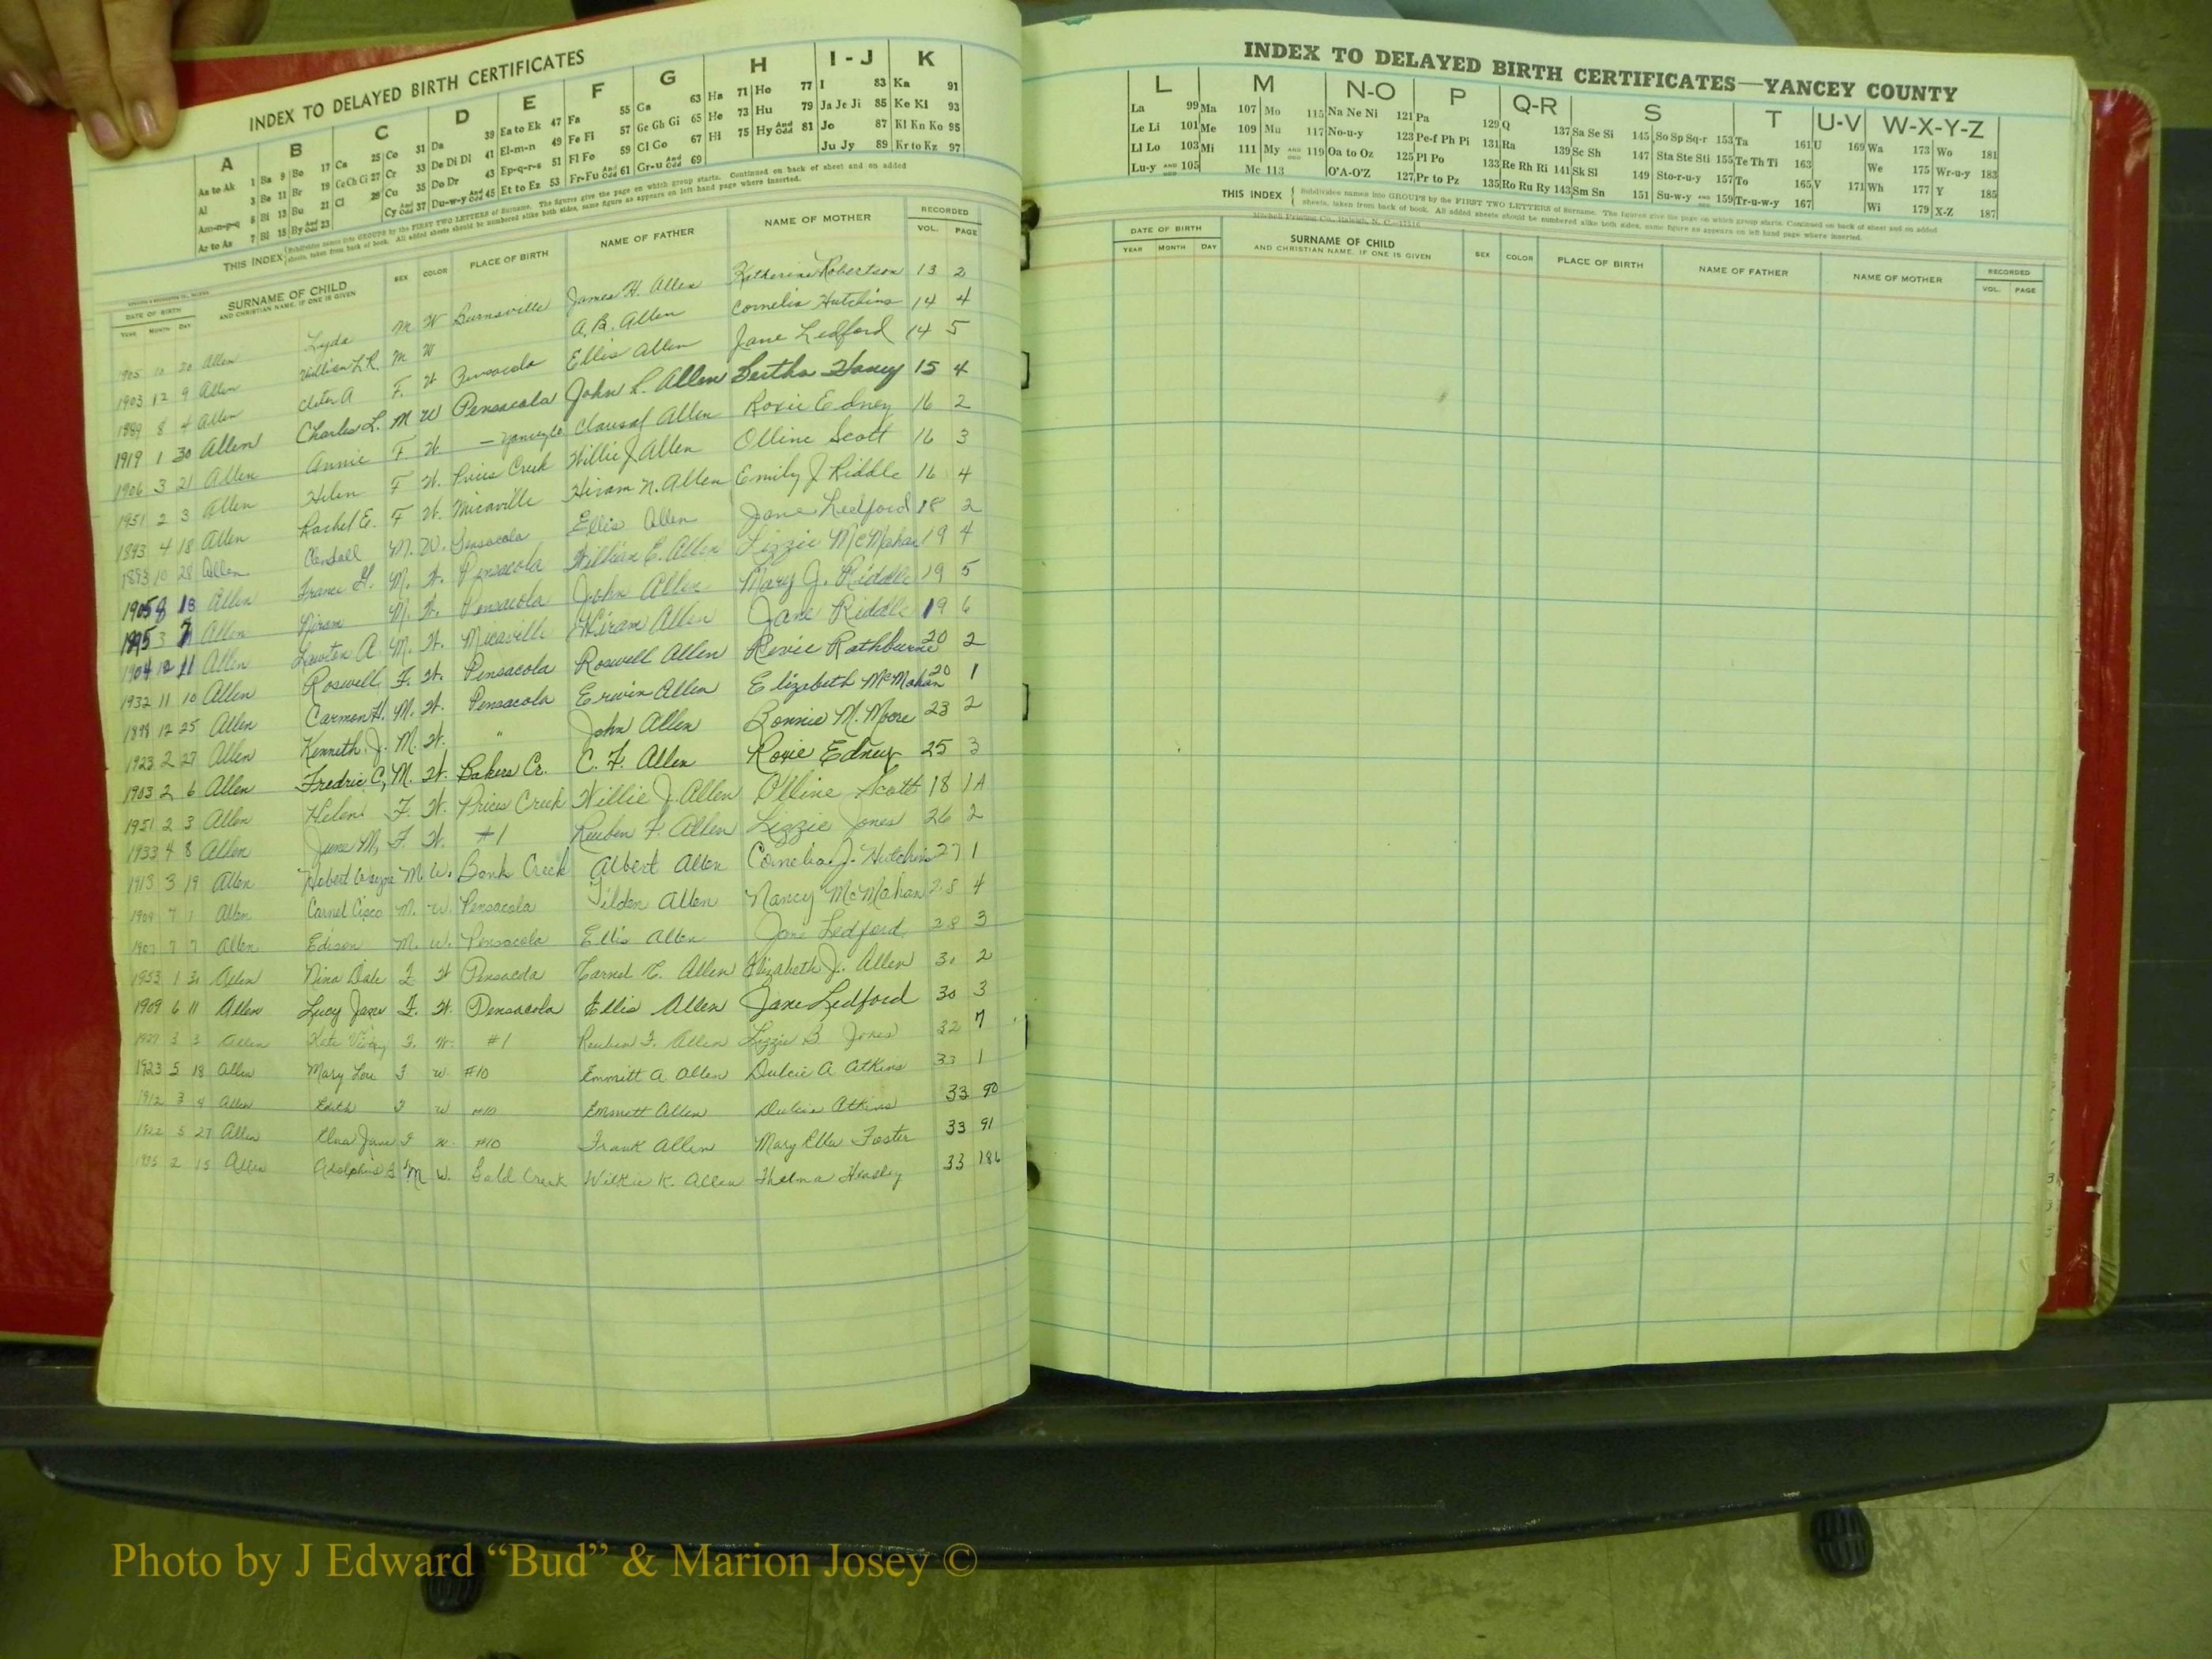 INDEX TO DELAYED BIRTH CERTIFICATES
A B C D E F G H I - J K
Aa to Ak 1 Ba 9 Bo 17 Ca 25 Co 31 Da 39 Ea to Ek 47 Fa 55 Ga 63 Ha 71 Ho 77 I 83 Ka 91
Al 3 Be 11 Br 19 Ce Ch Ci 27 Cr 33 De Di Dl 41 El-m-n 49 Fe Fi 57 Ge Gh Gi 65 He 73 Hu 79 Ja Je Ji 85 Ke Ki 93
Am-n-p-q 5 Bi 13 Bu 21 Cl 29 Cu 35 Do Dr 43 Ep-q-r-s 51 Fl Fo 59 Gl Go 67 Hi 75 Hy And Odd 81 Jo 87 Kl Kn Ko 95
Ar to Az 7 Bl 15 By And Odd 23 Cy And Odd 37 Du-w-y And Odd 45 Et to Ez 53 Fr-Fu And Odd 61 Gr-u And Odd 69 Ju Jy 89 Kr to Kz 97
THIS INDEX Subdivides names into GROUPS by the FIRST TWO LETTERS of Surname. The figures give the page on which group starts. Continued on back of sheet and on added
sheets, taken from back of book. All added sheets should be numbered alike both sides, same figure as appears on left hand page where inserted.
DATE OF BIRTH SURNAME OF CHILD SEX COLOR PLACE OF BIRTH NAME OF FATHER NAME OF MOTHER RECORDED
YEAR MONTH DAY AND CHRISTIAN NAME, IF ONE IS GIVEN VOL. PAGE
1905 10 20 Allen Lyda M W Burnsville James H. Allen Katherine Robertson 13 2
1903 12 9 Allen William L.R. M W A. B. Allen Cornelia Hutchins 14 4
1889 8 4 Allen A F. W Pensacola Ellis Allen Jane Ledford 14 5
1919 1 30 Allen Charles L. M W Pensacola John L. Allen Bertha Haney 15 4
1906 3 21 Allen Annie F W — Yancey Co Allen Roxie Edney 16 2
1951 2 3 Allen Helen F W. Prices Creek Willie J Allen Olline Scott 16 3
1893 4 18 Allen Rachel E. F W. Micaville Hiram N. Allen Emily J Riddle 16 4
1893 10 28 Allen M. W. Pensacola Ellis Allen Jane Ledford 18 2
1905 8 13 Allen M. W. Pensacola William E. Allen Lizzie McMahan 19 4
1895 3 7 Allen Hiram M. W. Pensacola John Allen Mary J. Riddle 19 5
1904 12 11 Allen Lawton A M. W. Micaville Hiram Allen Jane Riddle 19 6
1932 11 10 Allen Roswell F. W. Pensacola Roswell Allen Rathburne 20 2
1898 12 25 Allen Carmon H. M. W. Pensacola Erwin Allen Elizabeth McMahan 20 1
1923 2 27 Allen Kenneth J. M. W. " John Allen Bonnie M. Moore 23 2
1903 2 6 Allen Fredric C, M. W. Bakers Cr. C. F. Allen Roxie Edney 25 3
1951 2 3 Allen Helen F. W. Prices Creek Willie J. Allen Olline Scott 18 1A
1933 4 8 Allen June M, F. W. #1 Reuben F. Allen Lizzie Jones 26 2
1913 3 19 Allen M. W. Creek Albert Allen Cornelia J. Hutchins 27 1
1909 7 1 Allen Carnel Cisco M. W. Pensacola Tilden Allen Nancy McMahan 28 4
1907 7 7 Allen Edison M. W. Pensacola Ellis Allen Jane Ledford 28 3
1953 1 Allen Nina Dale F W Pensacola Carnel C. Allen Elizabeth J. Allen 2
1909 6 11 Allen Lucy Jane F. W. Pensacola Ellis Allen Jane Ledford 30 3
1927 3 3 Allen Kate F. W. #1 Reuben F. Allen Lizzie B Jones 32 7
1923 5 18 Allen Mary Lou F W #10 Emmitt A. Allen Dulcie A Atkins 33 1
1912 3 4 Allen Edith F W #10 Emmett Allen Dulcie Atkins 33 90
1922 5 27 Allen Jane F W. #10 Frank Allen Mary Ella Foster 33 91
2 15 Allen M W. Bald Creek Wilkie K. Allen Thelma Hensley 33 186
INDEX TO DELAYED BIRTH CERTIFICATES—YANCEY COUNTY
L M N-O P Q-R S T U-V W-X-Y-Z
La 99 Ma 107 Mo 115 Na Ne Ni 121 Pa 129 Q 137 Sa Se Si 145 So Sp Sq-r 153 Ta 161 U 169 Wa 173 Wo 181
Le Li 101 Me 109 Mu 117 No-u-y 123 Pe-f Ph Pi 131 Ra 139 Sc Sh 147 Sta Ste Sti 155 Te Th Ti 163 We 175 Wr-u-y 183
Ll Lo 103 Mi 111 My AND ODD 119 Oa to Oz 125 Pl Po 133 Re Rh Ri 141 Sk Sl 149 Sto-r-u-y 157 To 165 V 171 Wh 177 Y 185
Lu-y AND ODD 105 Mc 113 O'A-O'Z 127 Pr to Pz 135 Ro Ru Ry 143 Sm Sn 151 Su-w-y AND ODD 159 Tr-u-w-y 167 Wi 179 X-Z 187
THIS INDEX Subdivides names into GROUPS by the FIRST TWO LETTERS of Surname. The figures give the page on which group starts. Continued on back of sheet and on added
sheets, taken from back of book. All added sheets should be numbered alike both sides, same figure as appears on left hand page where inserted.
Mitchell Printing Co., Raleigh, N. C.
DATE OF BIRTH SURNAME OF CHILD SEX COLOR PLACE OF BIRTH NAME OF FATHER NAME OF MOTHER RECORDED
YEAR MONTH DAY AND CHRISTIAN NAME, IF ONE IS GIVEN VOL. PAGE
Photo by J Edward “Bud” & Marion Josey ©